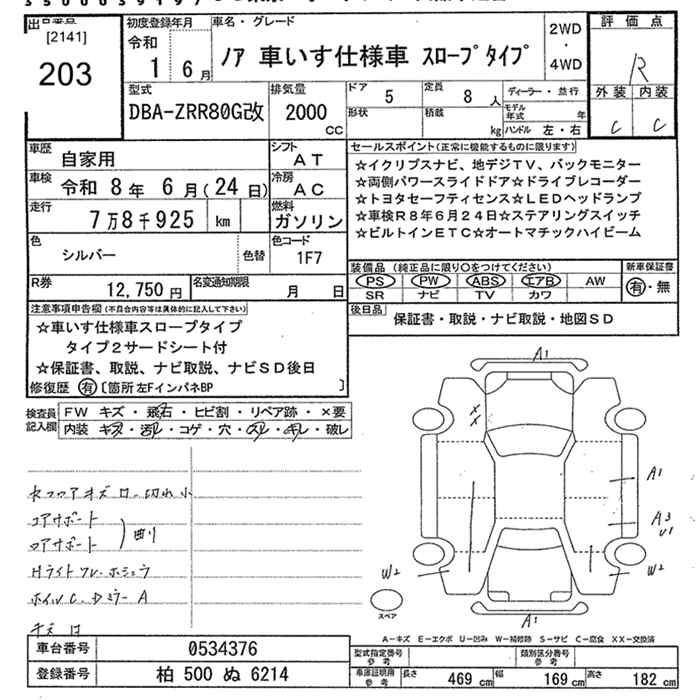 [2141]
203
初度登録年月
令和
1 6月
車名・グレード
ノア 車いす仕様車 スロープタイプ
2WD
・
4WD
評価点
R
外装 内装
C C
型式
DBA-ZRR80G改
排気量
2000
CC
ドア
5
定員
8人
形状
積載
kg
ディーラー・並行
モデル年式 年
ハンドル 左・右
車歴
自家用
シフト
AT
車検
令和 8年 6月(24日)
冷房
AC
走行
7万8千925 km
燃料
ガソリン
色
シルバー
色替
色コード
1F7
R券
12,750円
名変通知期限
月 日
セールスポイント(正常に機能するものに限ります)
☆イクリプスナビ、地デジTV、バックモニター
☆両側パワースライドドア☆ドライブレコーダー
☆トヨタセーフティセンス☆LEDヘッドランプ
☆車検R8年6月24日☆ステアリングスイッチ
☆ビルトインETC☆オートマチックハイビーム
装備品(純正品に限り○をつけてください)
PS PW ABS エアB AW
SR ナビ TV カワ
新車保証書
有・無
後日品
保証書・取説・ナビ取説・地図SD
注意事項申告欄(不具合内容等は具体的に記入して下さい)
☆車いす仕様車スロープタイプ
タイプ2サードシート付
☆保証書、取説、ナビ取説、ナビSD後日
修復歴 有 〔箇所 左FインパネBP 〕
検査員記入欄
FW キズ・飛石・ヒビ割・リペア跡・×要
内装 キズ・汚れ・コゲ・穴・スレ・キレ・破レ
コアサポート
曲り
Hライト
ホイルC. DミラーA
A1
××
A1
A3
U1
W2
W2
A1
スペア
A-キズ E-エクボ U-凹み W-補修跡 S-サビ C-腐食 XX-交換済
車台番号
0534376
登録番号
柏 500 ぬ 6214
型式指定番号
参考
類別区分番号
参考
車庫証明用
参考
長さ 469cm
幅 169cm
高さ 182cm